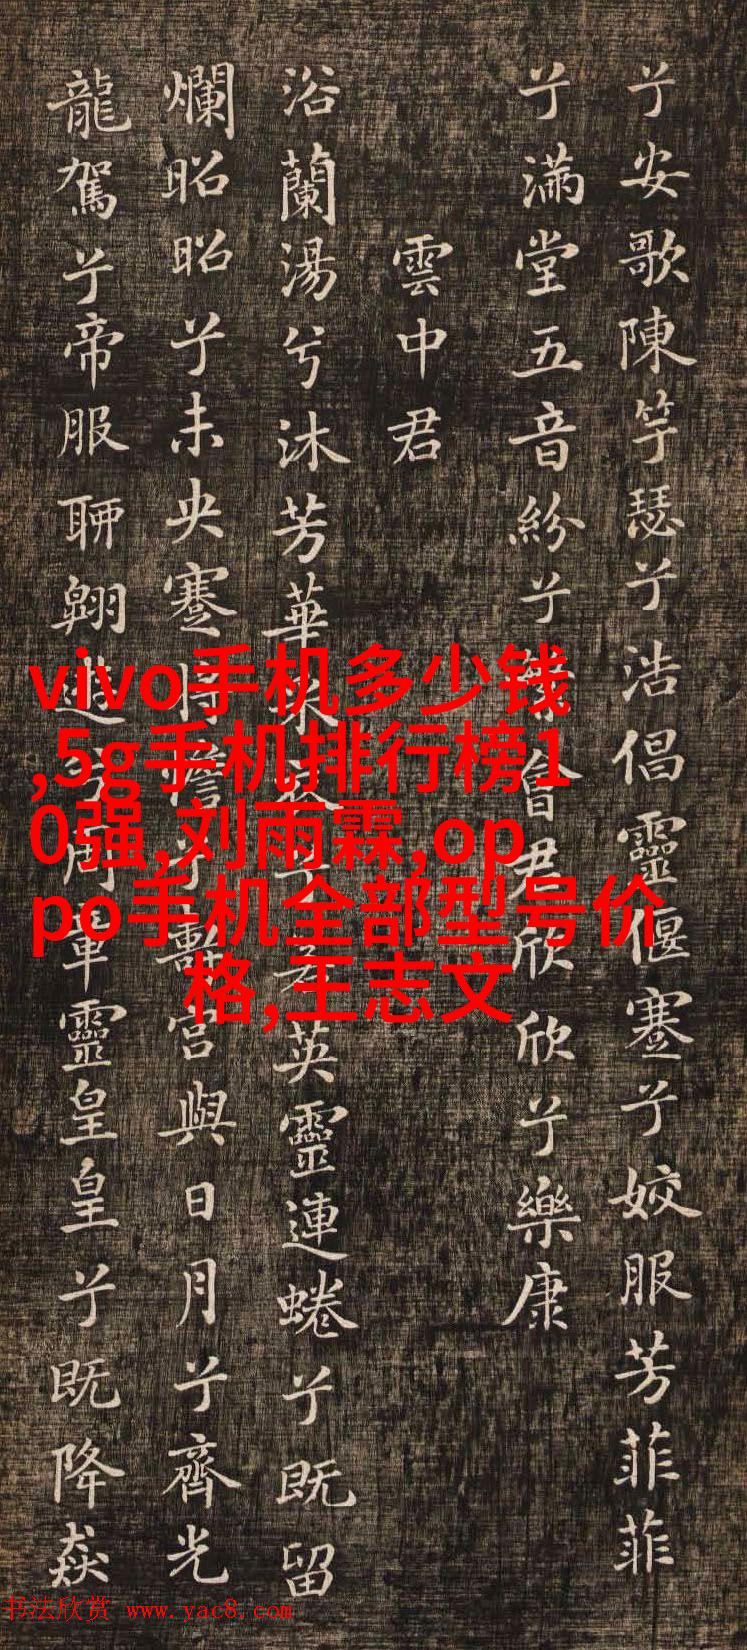 兮安歌陳竽瑟兮浩倡靈偃蹇兮姣服芳菲菲
兮滿堂五音紛兮繁會君欣欣兮樂康
雲中君
浴蘭湯兮沐芳華采衣兮若英靈連蜷兮既留
爛昭昭兮未央蹇將憺兮壽宮與日月兮齊光
龍駕兮帝服聊翱遊兮周章靈皇皇兮既降猋
vivo手机多少钱
,5g手机排行榜1
0强,刘雨霖,op
po手机全部型号价
格,王志文
书法欣赏 www.yac8.com